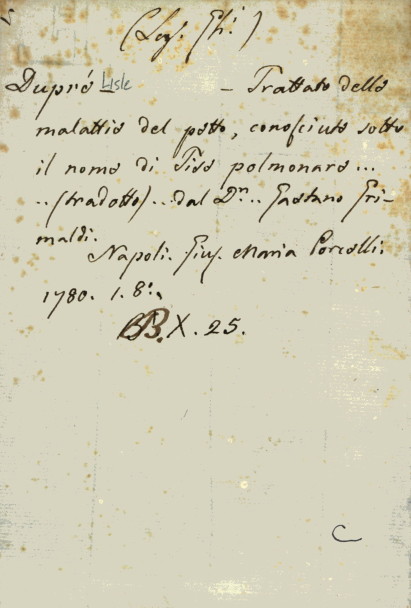 (Leg. Gh.)
Dupré - Lisle - Trattato delle
malattie del petto, conosciute sotto
il nome di Tise polmonare...
..(tradotto)...dal Dr... Gaetano Gri-
maldi.
Napoli. Gius. Maria Porcelli.
1780. 1. 8º.
BB. X. 25.
C